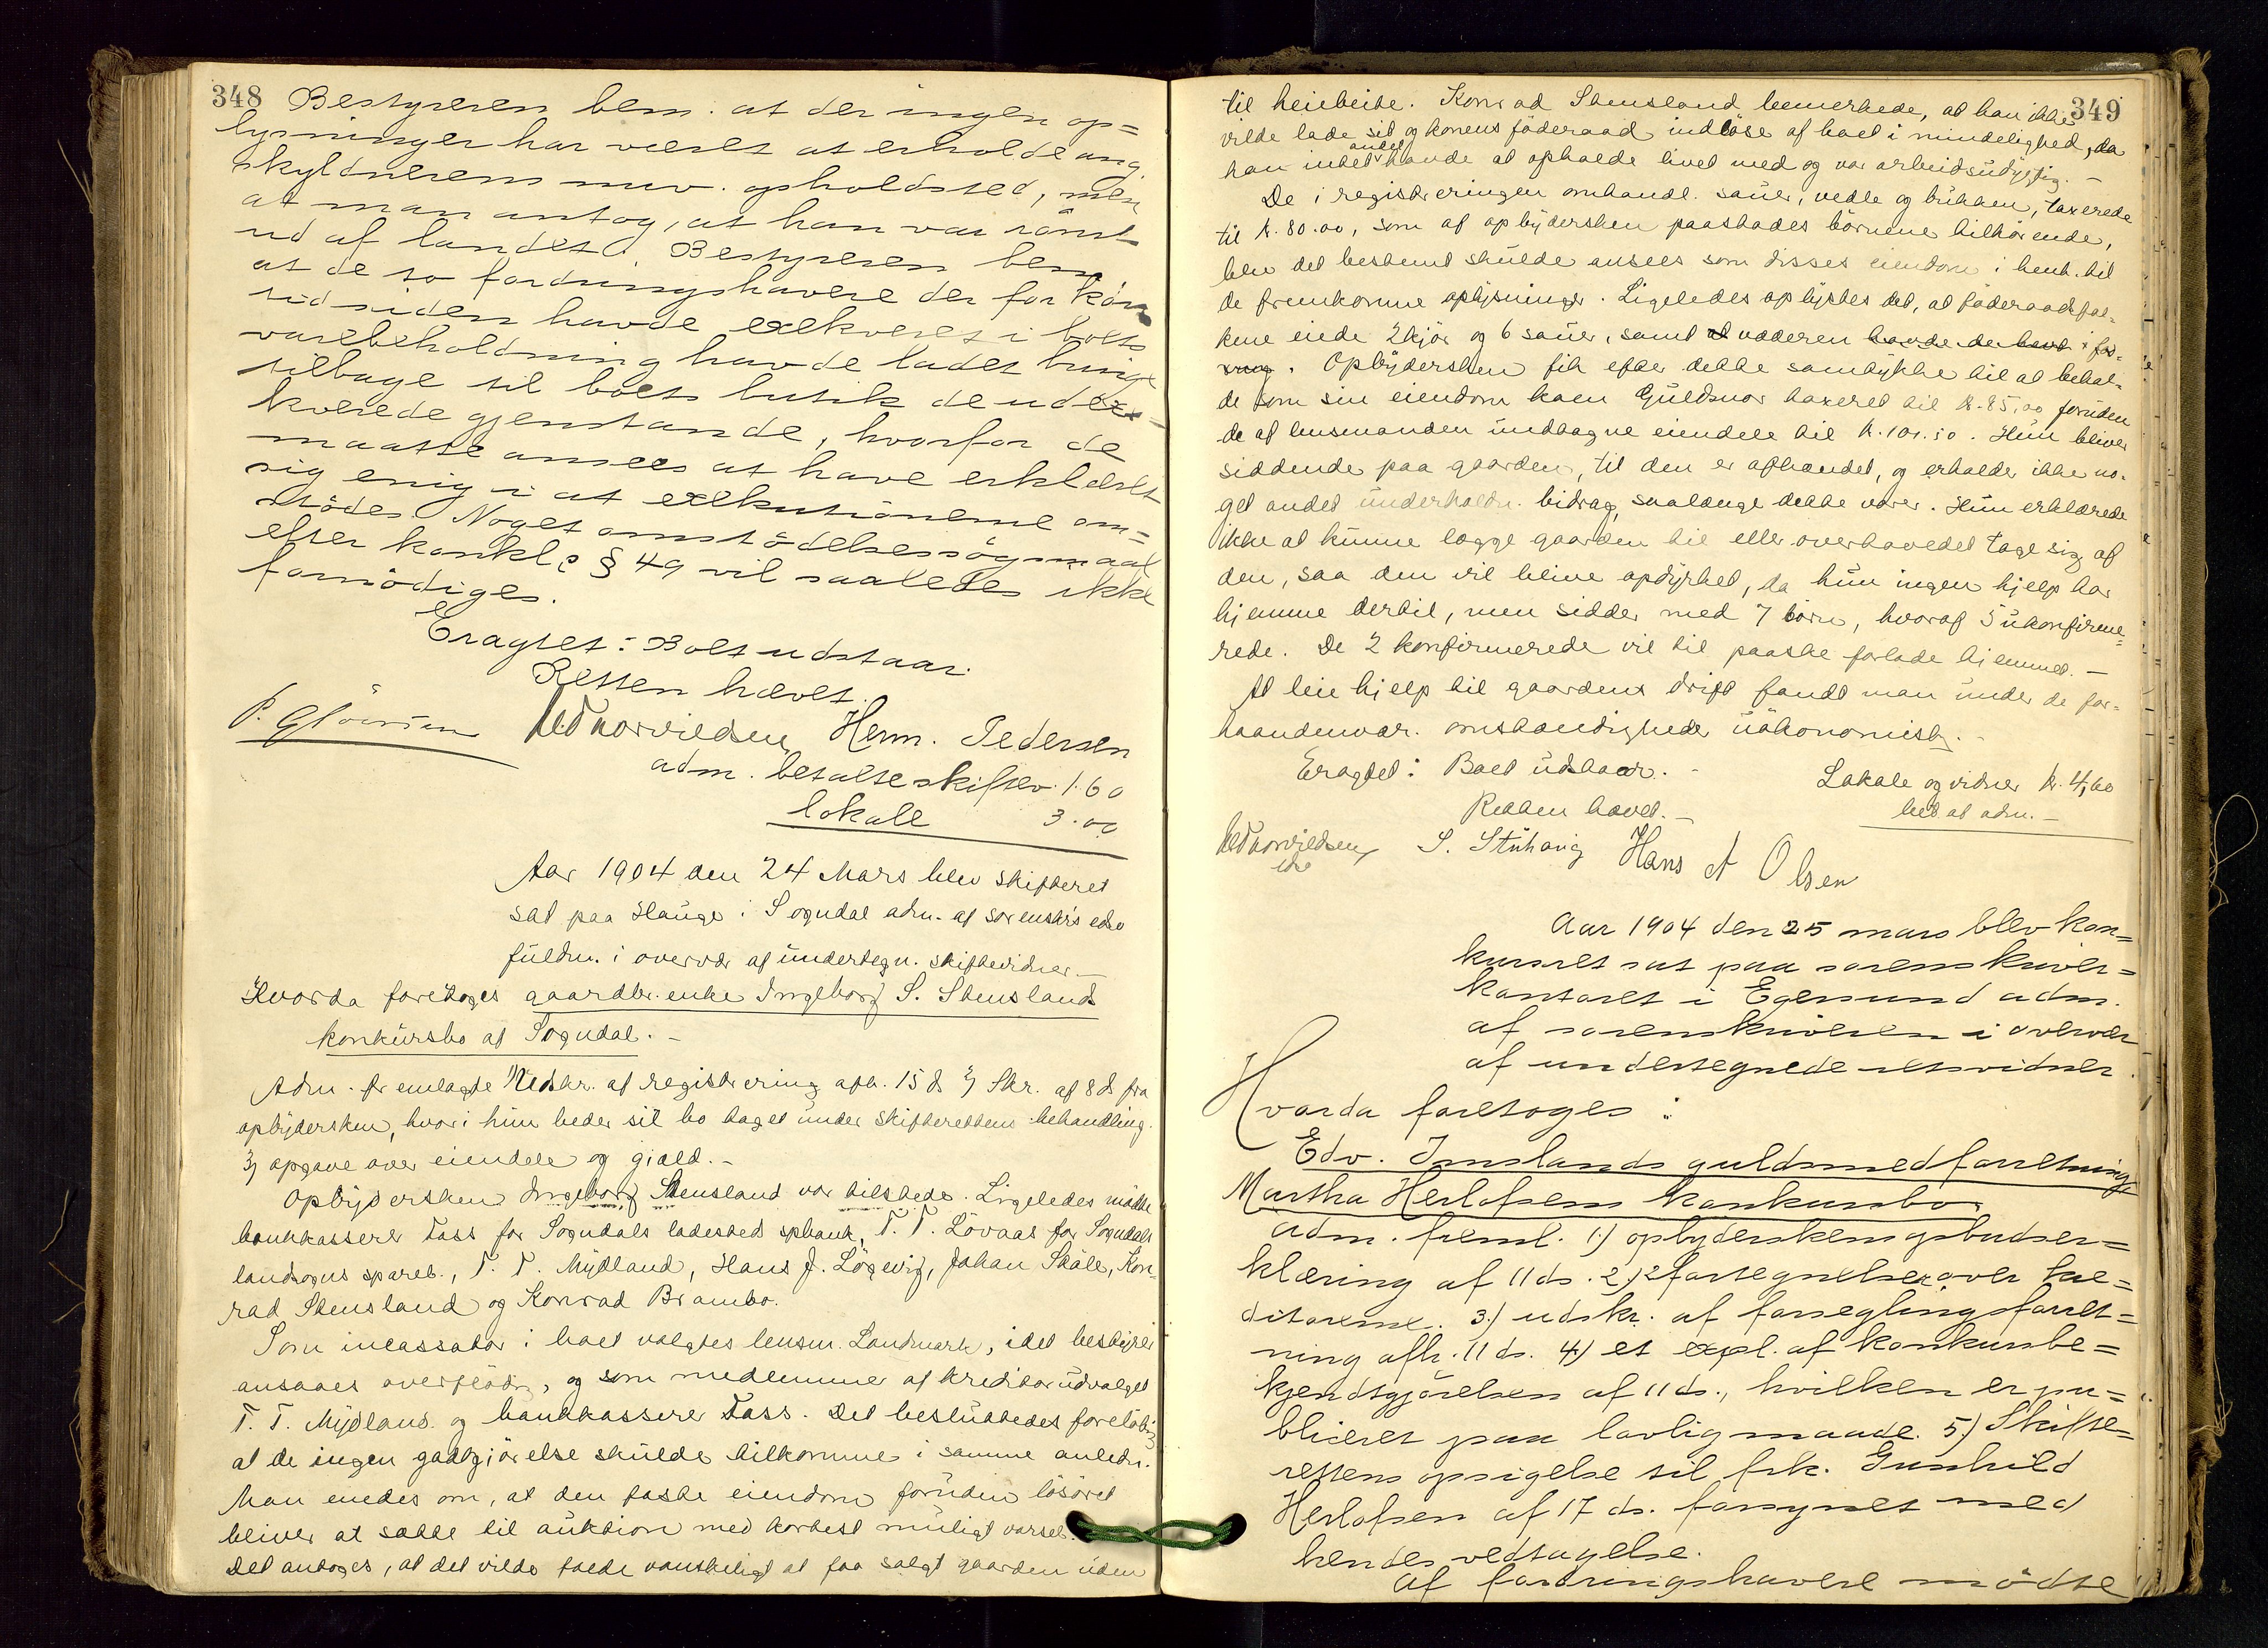 348
Bestyreren bem. at der ingen op=
lysninger har været at erholde ang.
skyldnerens nuv. opholdssted, men
at man antog, at han var rømt
ud af landet. Bestyreren bem.
at de to fordringshavere der for kort
tid siden havde exekveret i boets
varebeholdning havde ladet bringe
tilbage til boets butik de udex=
kverede gjenstande, hvorfor de
maatte ansees at have erklært
sig enig i at exekutionerne om=
stødes. Noget omstødelsessøgsmaal
efter konkl. § 49 vil saaledes ikke
fornødiges.
Eragtet: Boet udstaar.
Retten hævet.
Herm. Pedersen
adm. betalte skiftev. 1.60
lokale 3.00
Aar 1904 den 24 Mars blev skifteret
sat paa Hauge i Sogndal adm. af sorenskr's edsv
fuldm. i overvær af undertegn. skiftevidner.—
Hvorda foretoges gaardbr. enke Ingeborg S. Stensland
konkursbo af Sogndal.—
Adm. fremlagte Udskr. af registrering afh. 15 ds 2) Skr. af 8 ds fra
opbydersken, hvori hun beder sit bo taget under skifterettens behandling.
3) opgave over eiendele og gjæld.—
Opbydersken Ingeborg Stensland var tilstede. Ligeledes mødte
bankkasserer Tass for Sogndals ladesteds spbank, T. T. Løvaas for Sogndals
landsogns spareb., T. T. Mydland, Hans J. Løgevig, Johan Skåle, Kon-
rad Stensland og Konrad Brambo.
Som incassator i boet valgtes lensm. Landmark, idet bestyrer
ansaaes overflødig, og som medlemmer af kreditorudvalget
T. T. Mydland og bankkasserer Tass. Det besluttedes foreløbig
at de ingen godtgjørelse skulde tilkomme i samme anledn.
Man enedes om, at den faste eiendom foruden løsøret
bliver at sætte til auktion med kortest muligt varsel.
Det antoges, at det vilde falde vanskeligt at faa solgt gaarden uden
349
til heiebeite. Konrad Stensland bemerkede, at han ikke
vilde lade sit og konens føderaad indløse af boet i mindelighed, da
han intet andet havde at opholde livet med og var arbeidsudygtig.—
De i registreringen omhandl. sauer, vedle og bukken, taxerede
til kr. 80.00, som af opbydersken paastodes børnene tilhørende,
blev det bestemt skulde ansees som disses eiendom i henh. til
de fremkomne oplysninger. Ligeledes oplystes det, at føderaadsfol=
kene eiede 2 kjør og 6 sauer, samt at væderen havde de havt i for-
. Opbydersken fik efter dette samtykke til at behol-
de som sin eiendom koen Guldsnor taxeret til kr. 85,00 foruden
de af lensmanden undtagne eiendele til kr. 101.50. Hun bliver
siddende paa gaarden, til den er afhændet, og erholder ikke no-
get andet underholdn. bidrag, saalænge dette varer. Hun erklærede
ikke at kunne lægge gaarden til eller overhovedet tage sig af
den, saa den vil blive opdyrket, da hun ingen hjelp har
hjemme dertil, men sidder med 7 børn, hvoraf 5 ukonfirme=
rede. De 2 konfirmerede vil til paaske forlade hjemmet.—
At leie hjelp til gaardens drift fandt man under de for-
haandenvær. omstændigheder uøkonomisk.—
Eragtet: Boet udstaar.—
Lokale og vidner kr. 4,60
bet af adm.—
Retten hævet.—
Hans A Olsen
Aar 1904 den 25 mars blev kon=
kursret sat paa sorenskriver=
kontoret i Egersund adm.
af sorenskriveren i overvær
af undertegnede retsvidner.
Hvorda foretoges:
Edv. Imslands guldsmedforretnings
Martha Herlofsens konkursbo.
Adm. freml. 1.) opbyderskens opbudser=
klæring af 11 ds. 2.) 2 fortegnelser over kre=
ditorerne. 3.) udskr. af forseglingsforret=
ning afh. 11 ds. 4.) et expl. af konkursbe=
kjendtgjørelsen af 11 ds., hvilken er pu=
bliceret paa lovlig maade. 5.) Skifte=
rettens opsigelse til frk. Gunhild
Herlofsen af 17 ds. forsynet med
hendes vedtagelse.
Af fordringshavere mødte